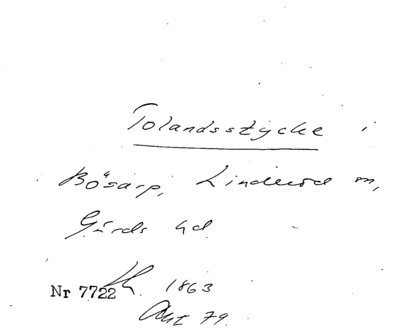 Tolandsstycke i
Bösarp, Linderöd m,
Gärds hd
Nr 7722 1863
Akt 79.